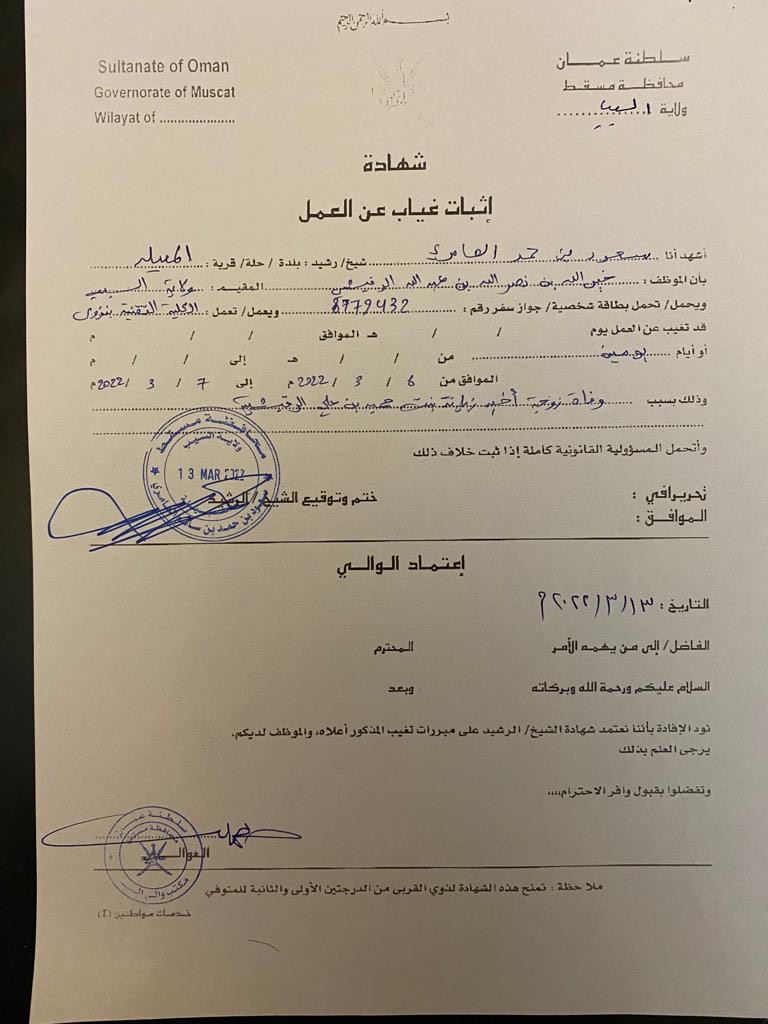 بسم الله الرحمن الرحيم
Sultanate of Oman
Governorate of Muscat
Wilayat of ....................
سلطنة عمان
محافظة مسقط
ولاية السيب
شهادة
إثبات غياب عن العمل
أشهد أنا سعود بن حمد العامري شيخ/ رشيد : بلدة / حلة/ قرية : المعبيله
بأن الموظف : نصر الله بن حمد الله المقيم : ولاية السيب
ويحمل/ تحمل بطاقة شخصية/ جواز سفر رقم : 8779432 ويعمل/ تعمل : الكلية التقنية بنزوى
قد تغيب عن العمل يوم / / هـ الموافق / / م
أو أيام يومين من / / هـ إلى / / م
الموافق من 6 / 3 / 2022 م إلى 7 / 3 / 2022 م
وذلك بسبب وفاة زوجة بنت بن علي
وأتحمل المسؤولية القانونية كاملة إذا ثبت خلاف ذلك
محافظة مسقط
ولاية السيب
13 MAR 2022
سعود بن حمد بن العامري
تحريرا في :
ختم وتوقيع الشيخ / الرشيد
الموافق :
إعتماد الوالي
التاريخ : ١٣/٣/٢٠٢٢م
الفاضل/ إلى من يهمه الأمر المحترم
السلام عليكم ورحمة الله وبركاته وبعد
نود الإفادة بأننا نعتمد شهادة الشيخ/ الرشيد على مبررات تغيب المذكور أعلاه، والموظف لديكم.
يرجى العلم بذلك
وتفضلوا بقبول وافر الاحترام،،،،
سلطنة عمان
محافظة مسقط
مكتب والي
الوالي
ملاحظة : تمنح هذه الشهادة لذوي القربى من الدرجتين الأولى والثانية للمتوفي
خدمات مواطنين (٤)